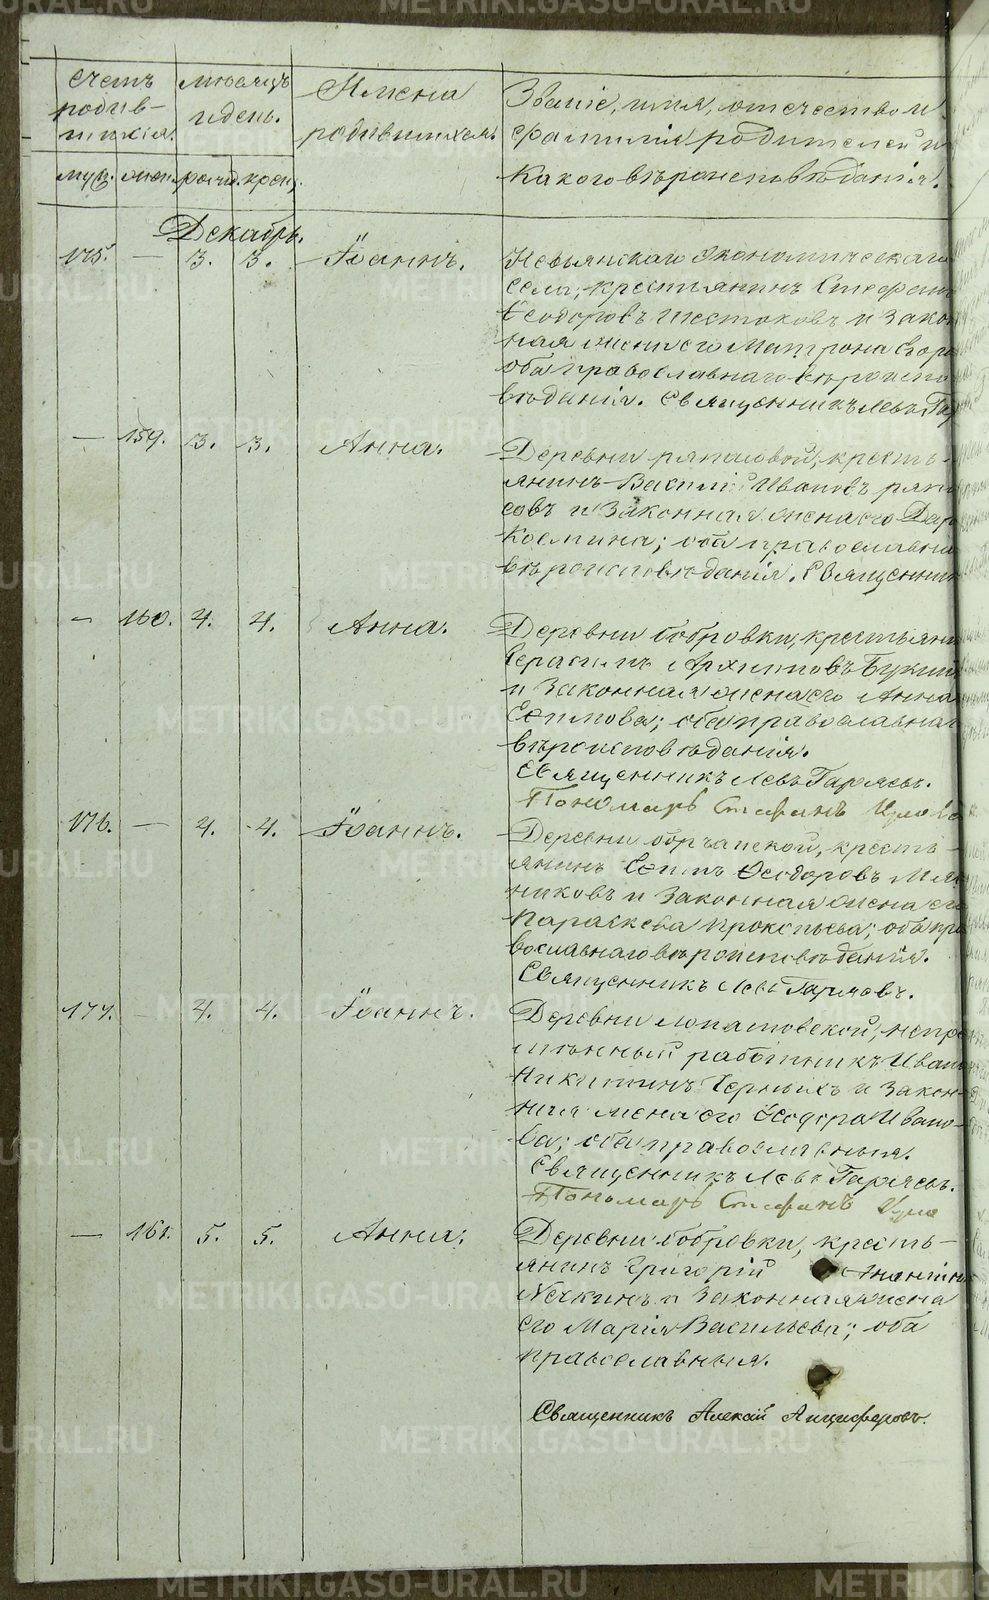 METRIKI.GASO-URAL.RU
Счетъ
родив-
шихся.
муж. жен.
Мѣсяцъ
и день.
рожд. крещ.
Имена
родившихся.
Званіе, имя, отечество и
фамилія родителей и
какого вѣроисповѣданія.
Декабрь.
175. — 3. 3. Іоаннъ.
Невьянскаго экономическаго
села, крестьянинъ Стефанъ
Ѳеодоровъ Шестаковъ и закон
ная жена его Матрона
оба православнаго вѣроиспо
вѣданія. Священникъ Левъ
— 159. 3. 3. Анна.
Деревни ряпасовой, кресть-
янинъ Василій Ивановъ ряпа
совъ и законная жена его Дар
Космина; оба православна
вѣроисповѣданія. Священник
— 160. 4. 4. Анна.
Деревни бобровки, крестьяни
Герасимъ Архиповъ Букин
и законная жена его Анна
Ефимова; оба православнаг
вѣроисповѣданія.
Священникъ Левъ Гаряевъ.
Пономарь Стефанъ
176. — 4. 4. Іоаннъ.
Деревни кресть-
янинъ Ефимъ Ѳеодоровъ
никовъ и законная жена его
Параскева Прокопьева; оба пра
вославнаго вѣроисповѣданія.
Священникъ Левъ Гаряевъ.
177. — 4. 4. Іоаннъ.
Деревни лопатовской, непре
мѣнный работникъ Иванъ
Никитинъ Черныхъ и закон-
ная жена его Ѳеодора Ивано-
ва; оба православныя.
Священникъ Левъ Гаряевъ.
Пономарь Стефанъ
— 161. 5. 5. Анна.
Деревни бобровки, кресть-
янинъ Григорій
и законная жена
его Марія Васильева; оба
православныя.
Священникъ Алексій Анциферовъ.